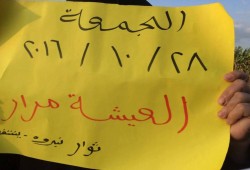 الجمعة
٢٨ / ١٠ / ٢٠١٦
العيشة مرار
ثوار